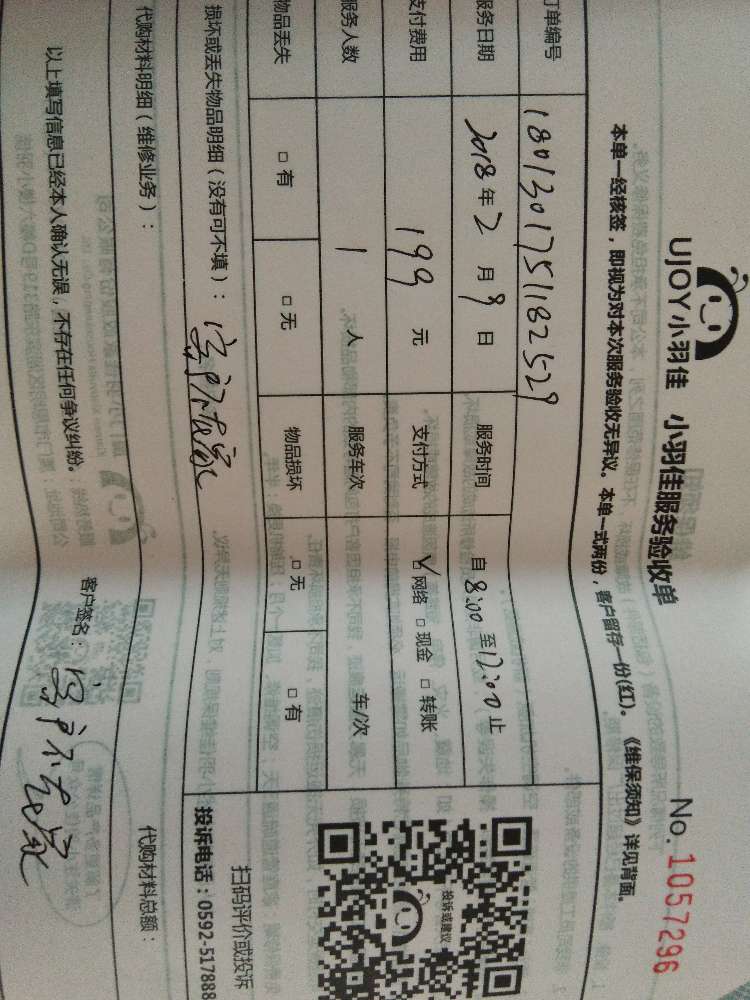 UJOY小羽佳 小羽佳服务验收单 No. 1057296
本单一经核签，即视为对本次服务验收无异议。本单一式两份，客户留存一份(红)。《维保须知》详见背面。
订单编号 1801301751182529
服务日期 2018年2月9日 服务时间 自8:00至12:00止
支付费用 199元 支付方式 ☑网络 □现金 □转账
服务人数 1人 服务车次 车/次
物品丢失 □有 □无 物品损坏 □无 □有
损坏或丢失物品明细（没有可不填）： 客户不在家
投诉或建议
扫码评价或投诉
投诉电话：0592-517888
代购材料明细（维修业务）： 代购材料总额：
以上填写信息已经本人确认无误，不存在任何争议纠纷。 客户签名： 客户不在家